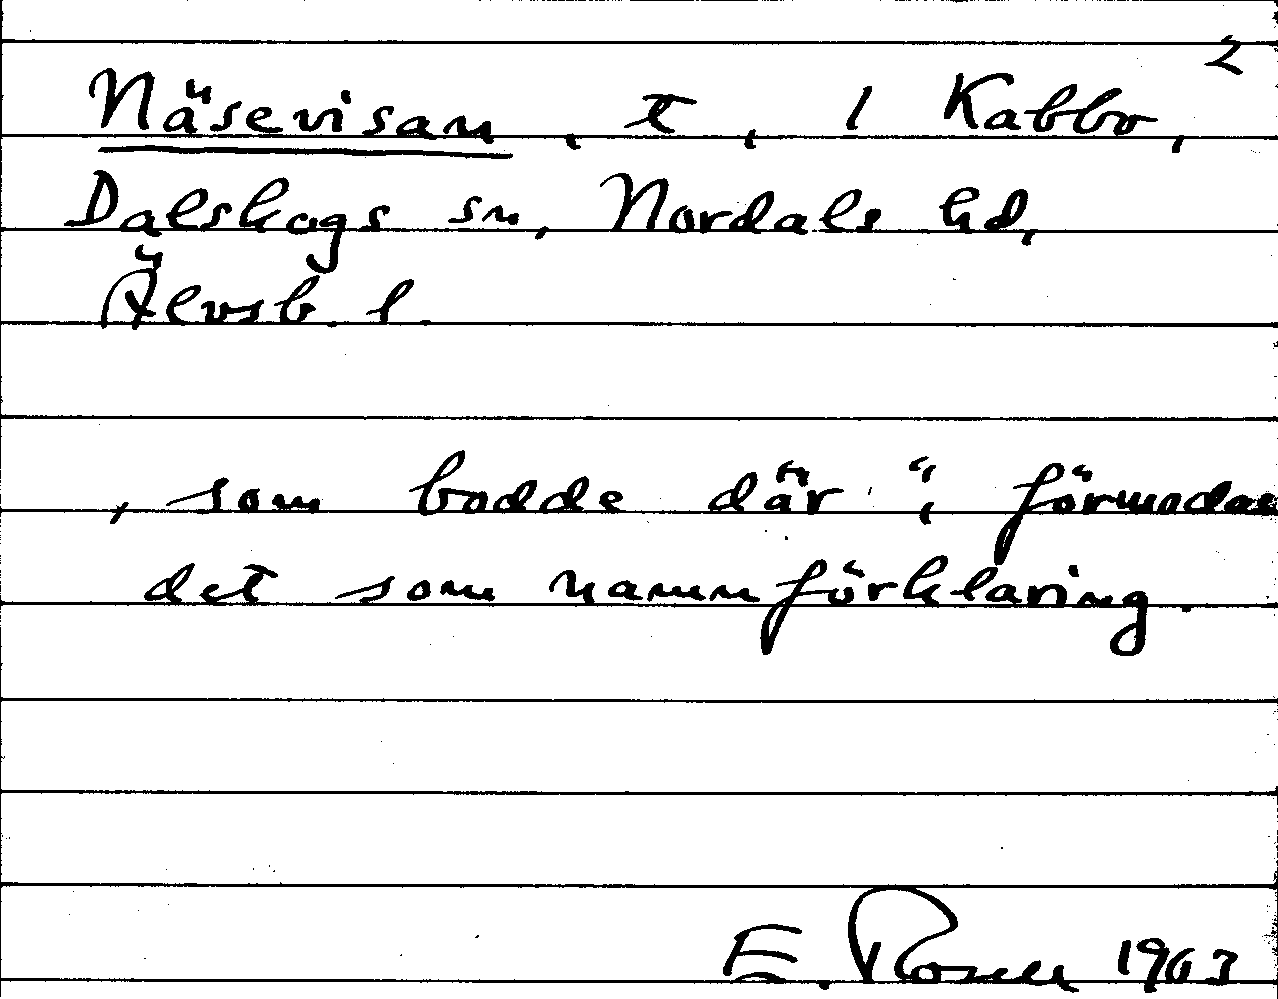 2
Näsevisan, t, 1 Kabbo,
Dalskogs sn, Nordals hd,
Älvsb. l
, som bodde där", förmodas
det som namnförklaring.
E. Rosell 1963